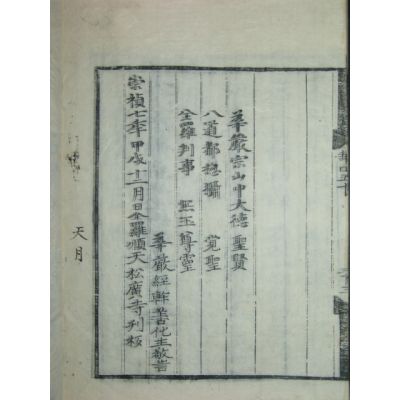 華嚴宗山中大德 聖賢
八道都摠攝 覺聖
全羅判事 熙玉尊靈
華嚴經幹善化主敬告
崇禎七年甲戌十二月日全羅順天松廣寺刊板
天月